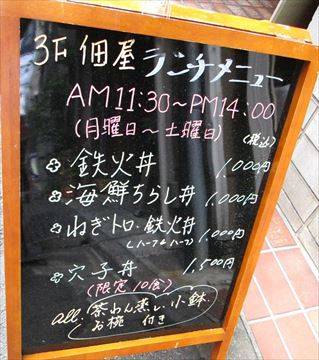 3F 佃屋 ランチメニュー
AM11:30~PM14:00
(月曜日~土曜日) (税込)
鉄火丼 1,000円
海鮮ちらし丼 1,000円
ねぎトロ・鉄火丼 1,000円
(ハーフ&ハーフ)
穴子丼 1,500円
(限定10食)
all. 茶わん蒸し、小鉢、
お椀 付き